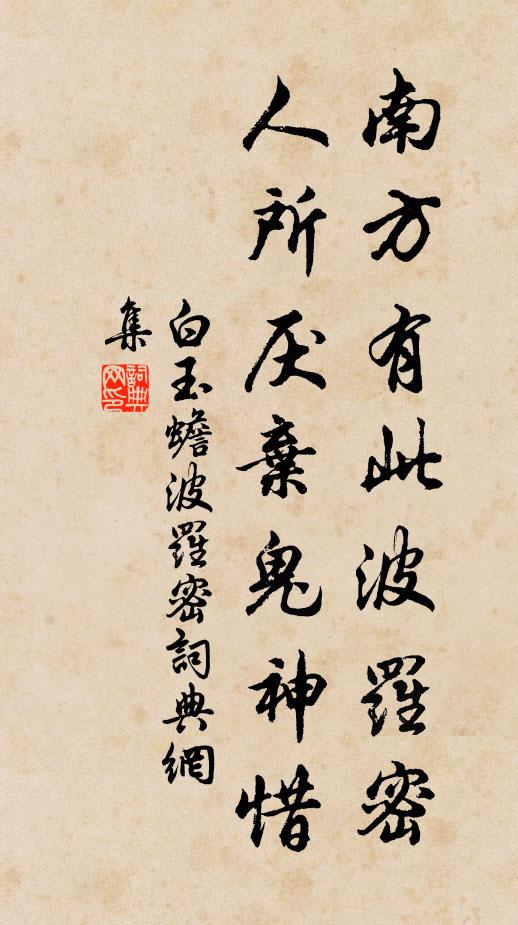 南方有此波羅密
人所厌棄鬼神惜
白玉蟾波羅密詞典網
集
詞典
网印